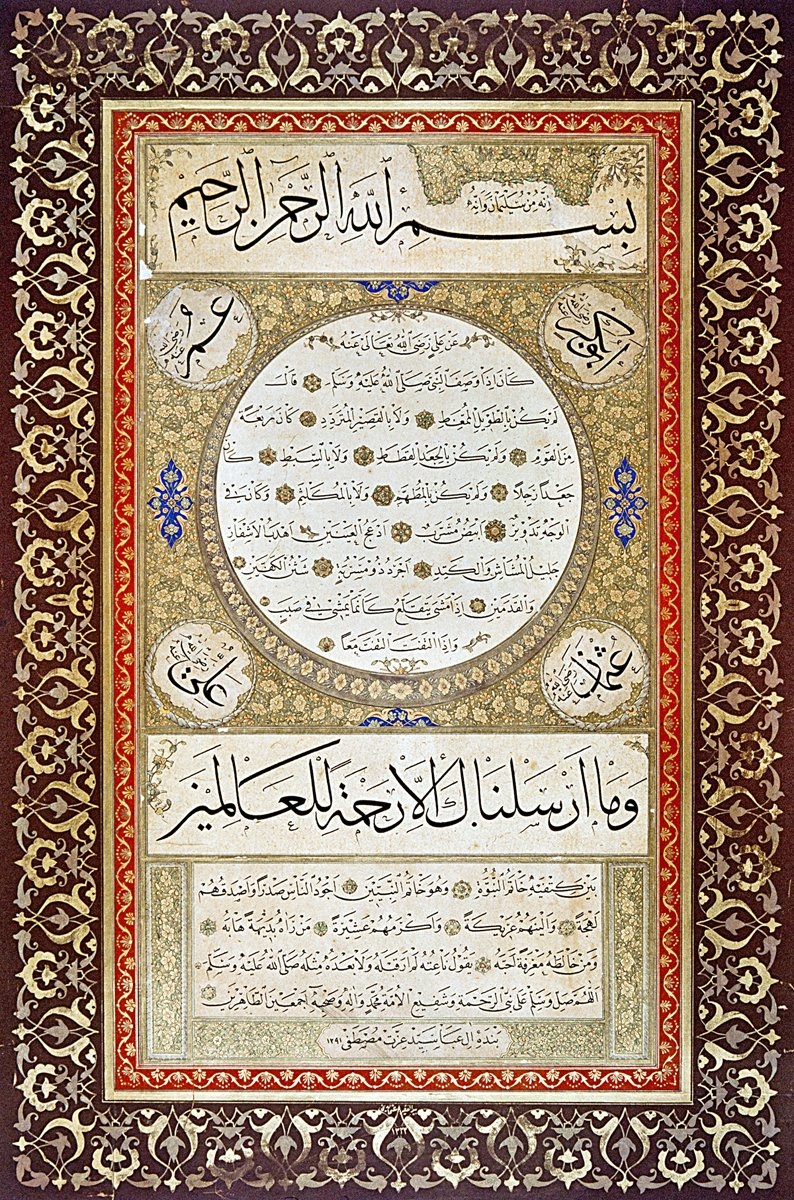 إنه من سليمان وإنه
بسم الله الرحمن الرحيم
أبو بكر رضي الله عنه
عمر رضي الله عنه
عن علي رضي الله تعالى عنه
كان إذا وصف النبي صلى الله عليه وسلم قال
لم يكن بالطويل الممغط ولا بالقصير المتردد كان ربعة
من القوم ولم يكن بالجعد القطط ولا بالسبط كان
جعدا رجلا ولم يكن بالمطهم ولا بالمكلثم وكان في
الوجه تدوير أبيض مشرب أدعج العينين أهدب الأشفار
جليل المشاش والكتد أجرد ذو مسربة شثن الكفين
والقدمين إذا مشى يتقلع كأنما يمشي في صبب
وإذا التفت التفت معا
عثمان رضي الله عنه
علي رضي الله عنه
وما أرسلناك إلا رحمة للعالمين
بين كتفيه خاتم النبوة وهو خاتم النبيين أجود الناس صدرا وأصدقهم
لهجة وألينهم عريكة وأكرمهم عشيرة من رآه بديهة هابه
ومن خالطه معرفة أحبه يقول ناعته لم أر قبله ولا بعده مثله صلى الله عليه وسلم
اللهم صل وسلم على نبي الرحمة وشفيع الأمة محمد وآله وصحبه أجمعين الطاهرين
بنده آل عبا سيد عزت مصطفى ١٢٩١